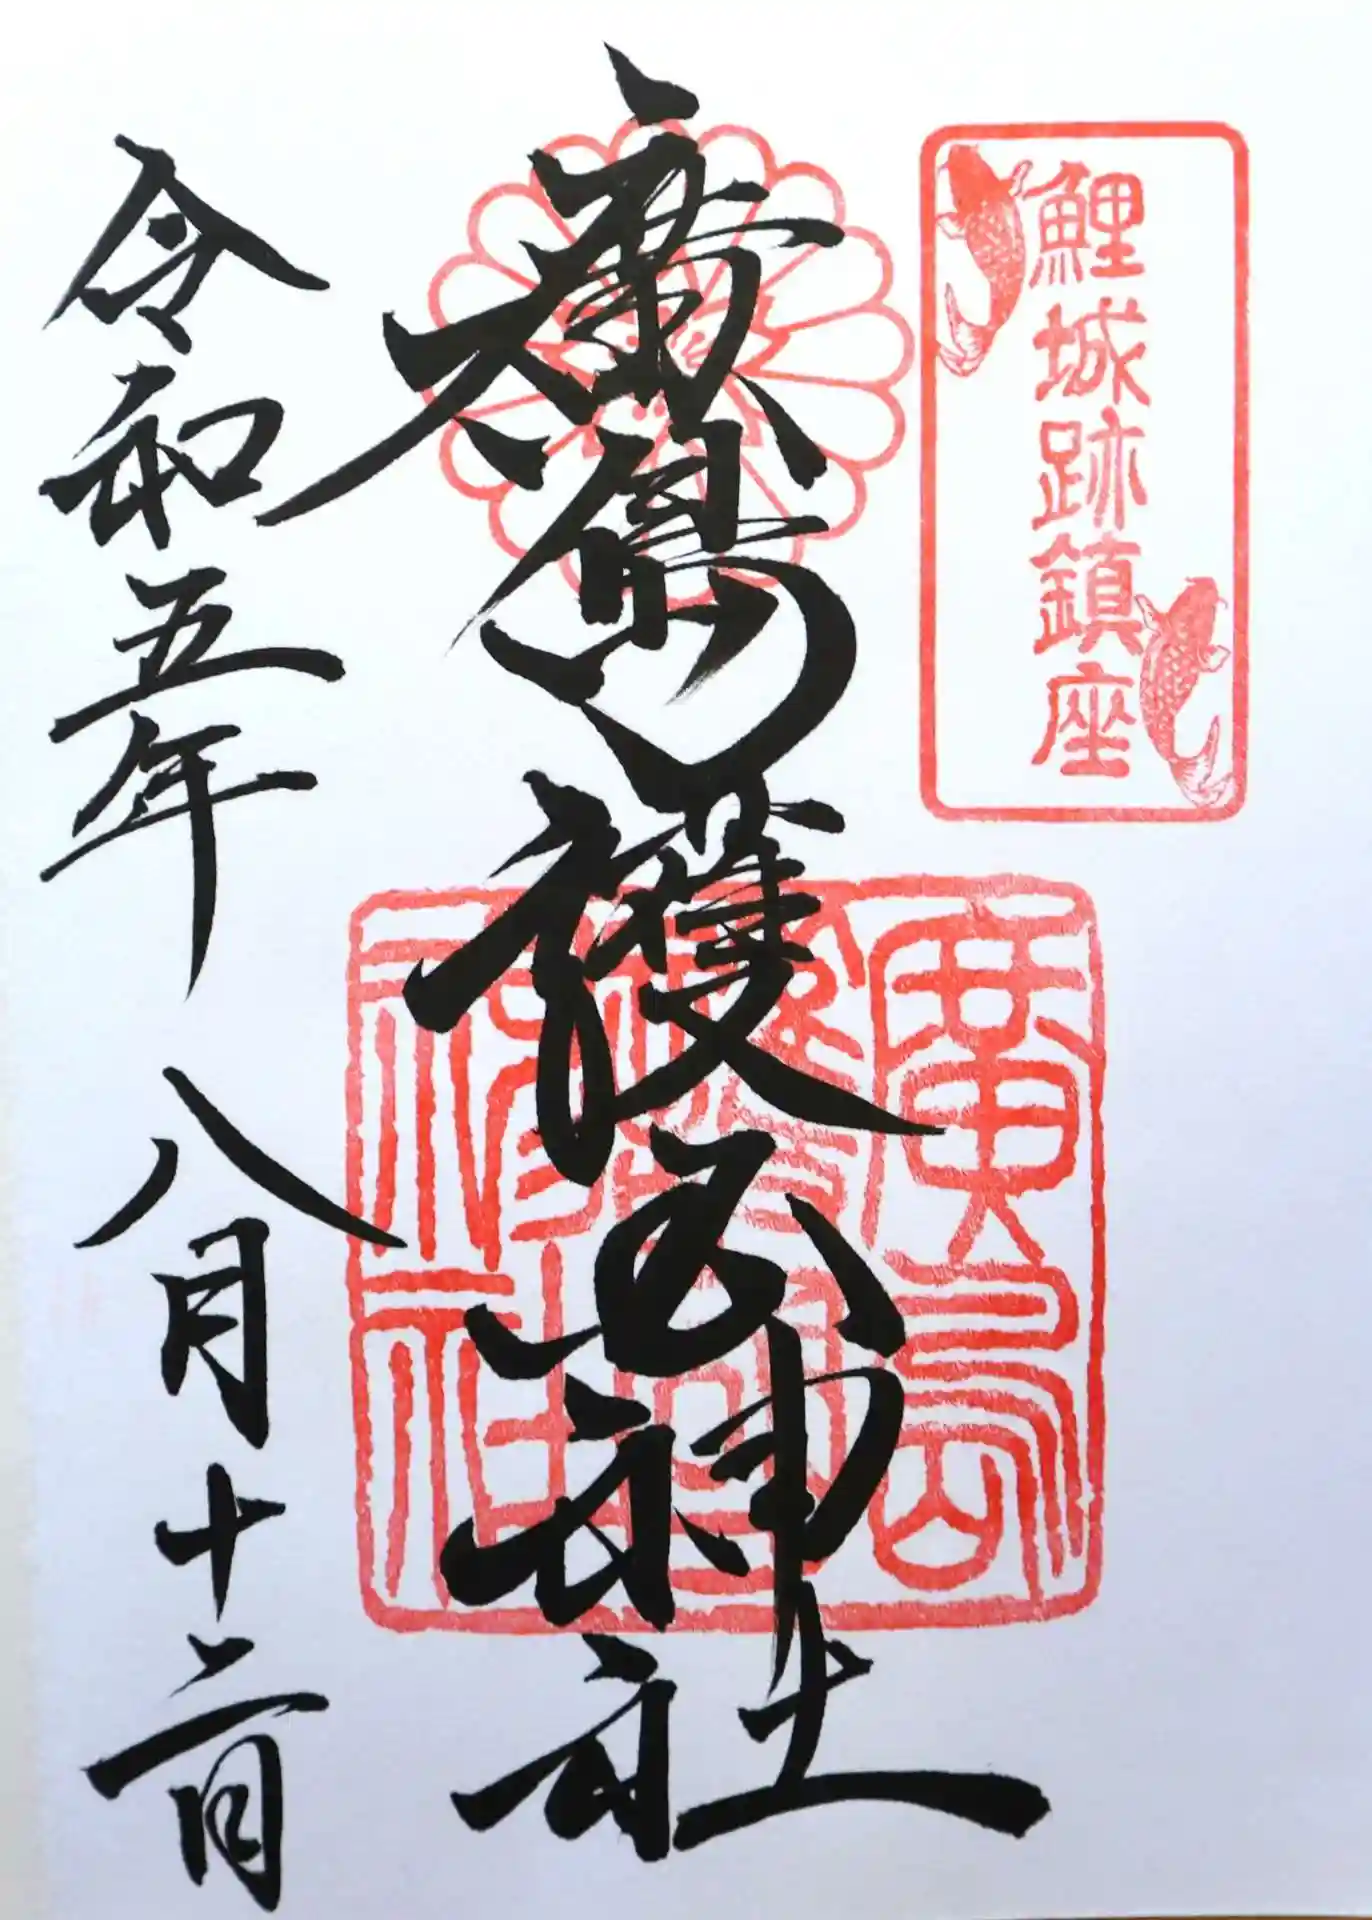 鯉城跡鎮座
廣島護国神社
廣島
護國
神社
令和五年 八月十二日